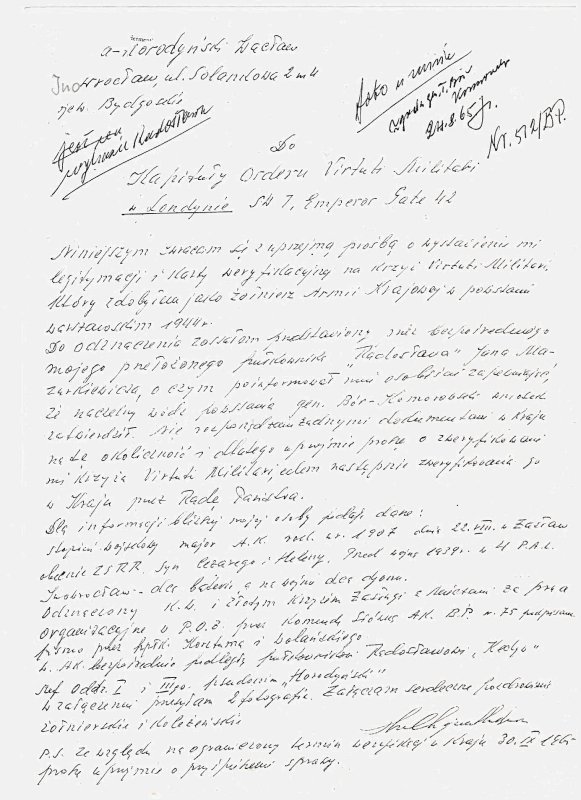 Horodyński Wacław
Inowrocław, ul. Solankowa 2 m 4
jest na
wykazie Radosława
Jako u mnie
Komorowski
24.8.65 r.
Nr. 512/B.P.
Do
Kapituły Orderu Virtuti Militari
w Londynie SW 7, Emperor Gate 42
Niniejszym zwracam się z uprzejmą prośbą o wystawienie mi
legitymacji i karty weryfikacyjnej na Krzyż Virtuti Militari,
który zdobyłem jako żołnierz Armii Krajowej w powstaniu
warszawskim 1944 r.
Do odznaczenia zostałem przedstawiony przez bezpośredniego
mojego przełożonego pułkownika "Radosława" Jana Ma-
zurkiewicza, o czym poinformował mnie osobiście zapewniając,
że naczelny wódz powstania gen. Bór-Komorowski wniosek
zatwierdził. Nie rozporządzam żadnymi dokumentami w Kraju
na tę okoliczność i dlatego uprzejmie proszę o zweryfikowanie
mi Krzyża Virtuti Militari, celem następnie zweryfikowania go
w Kraju przez Radę Państwa.
Dla informacji bliższej mojej osoby podaję dane:
stopień wojskowy major A.K. rodz. nr. 1907 dnia 22.VIII. w Zasław
obecnie ZSRR. Syn Cezarego i Heleny. Przed wojną 1939 r. w 4 P.A.L.
Inowrocław - dca baterii, a na wojnie dca dyonu.
Odznaczony K.W. i Złotym Krzyżem Zasługi z Mieczami za pracę
organizacyjną w P.O.Z. przez Komendę Główną AK. B.P. nr. 75 podpisane
pismo przez ppłk. i Wolańskiego.
W AK bezpośrednio podległy pułkownikowi Radosławowi, "Kedyw"
szef Oddz. I i III-go, pseudonim "Horodyński"
W załączeniu przesyłam 2 fotografie. Załączam serdeczne pozdrowienia
żołnierskie i koleżeńskie
P.S. Ze względu na ograniczony termin weryfikacji w Kraju 30.IX 1965
proszę uprzejmie o przyspieszenie sprawy.